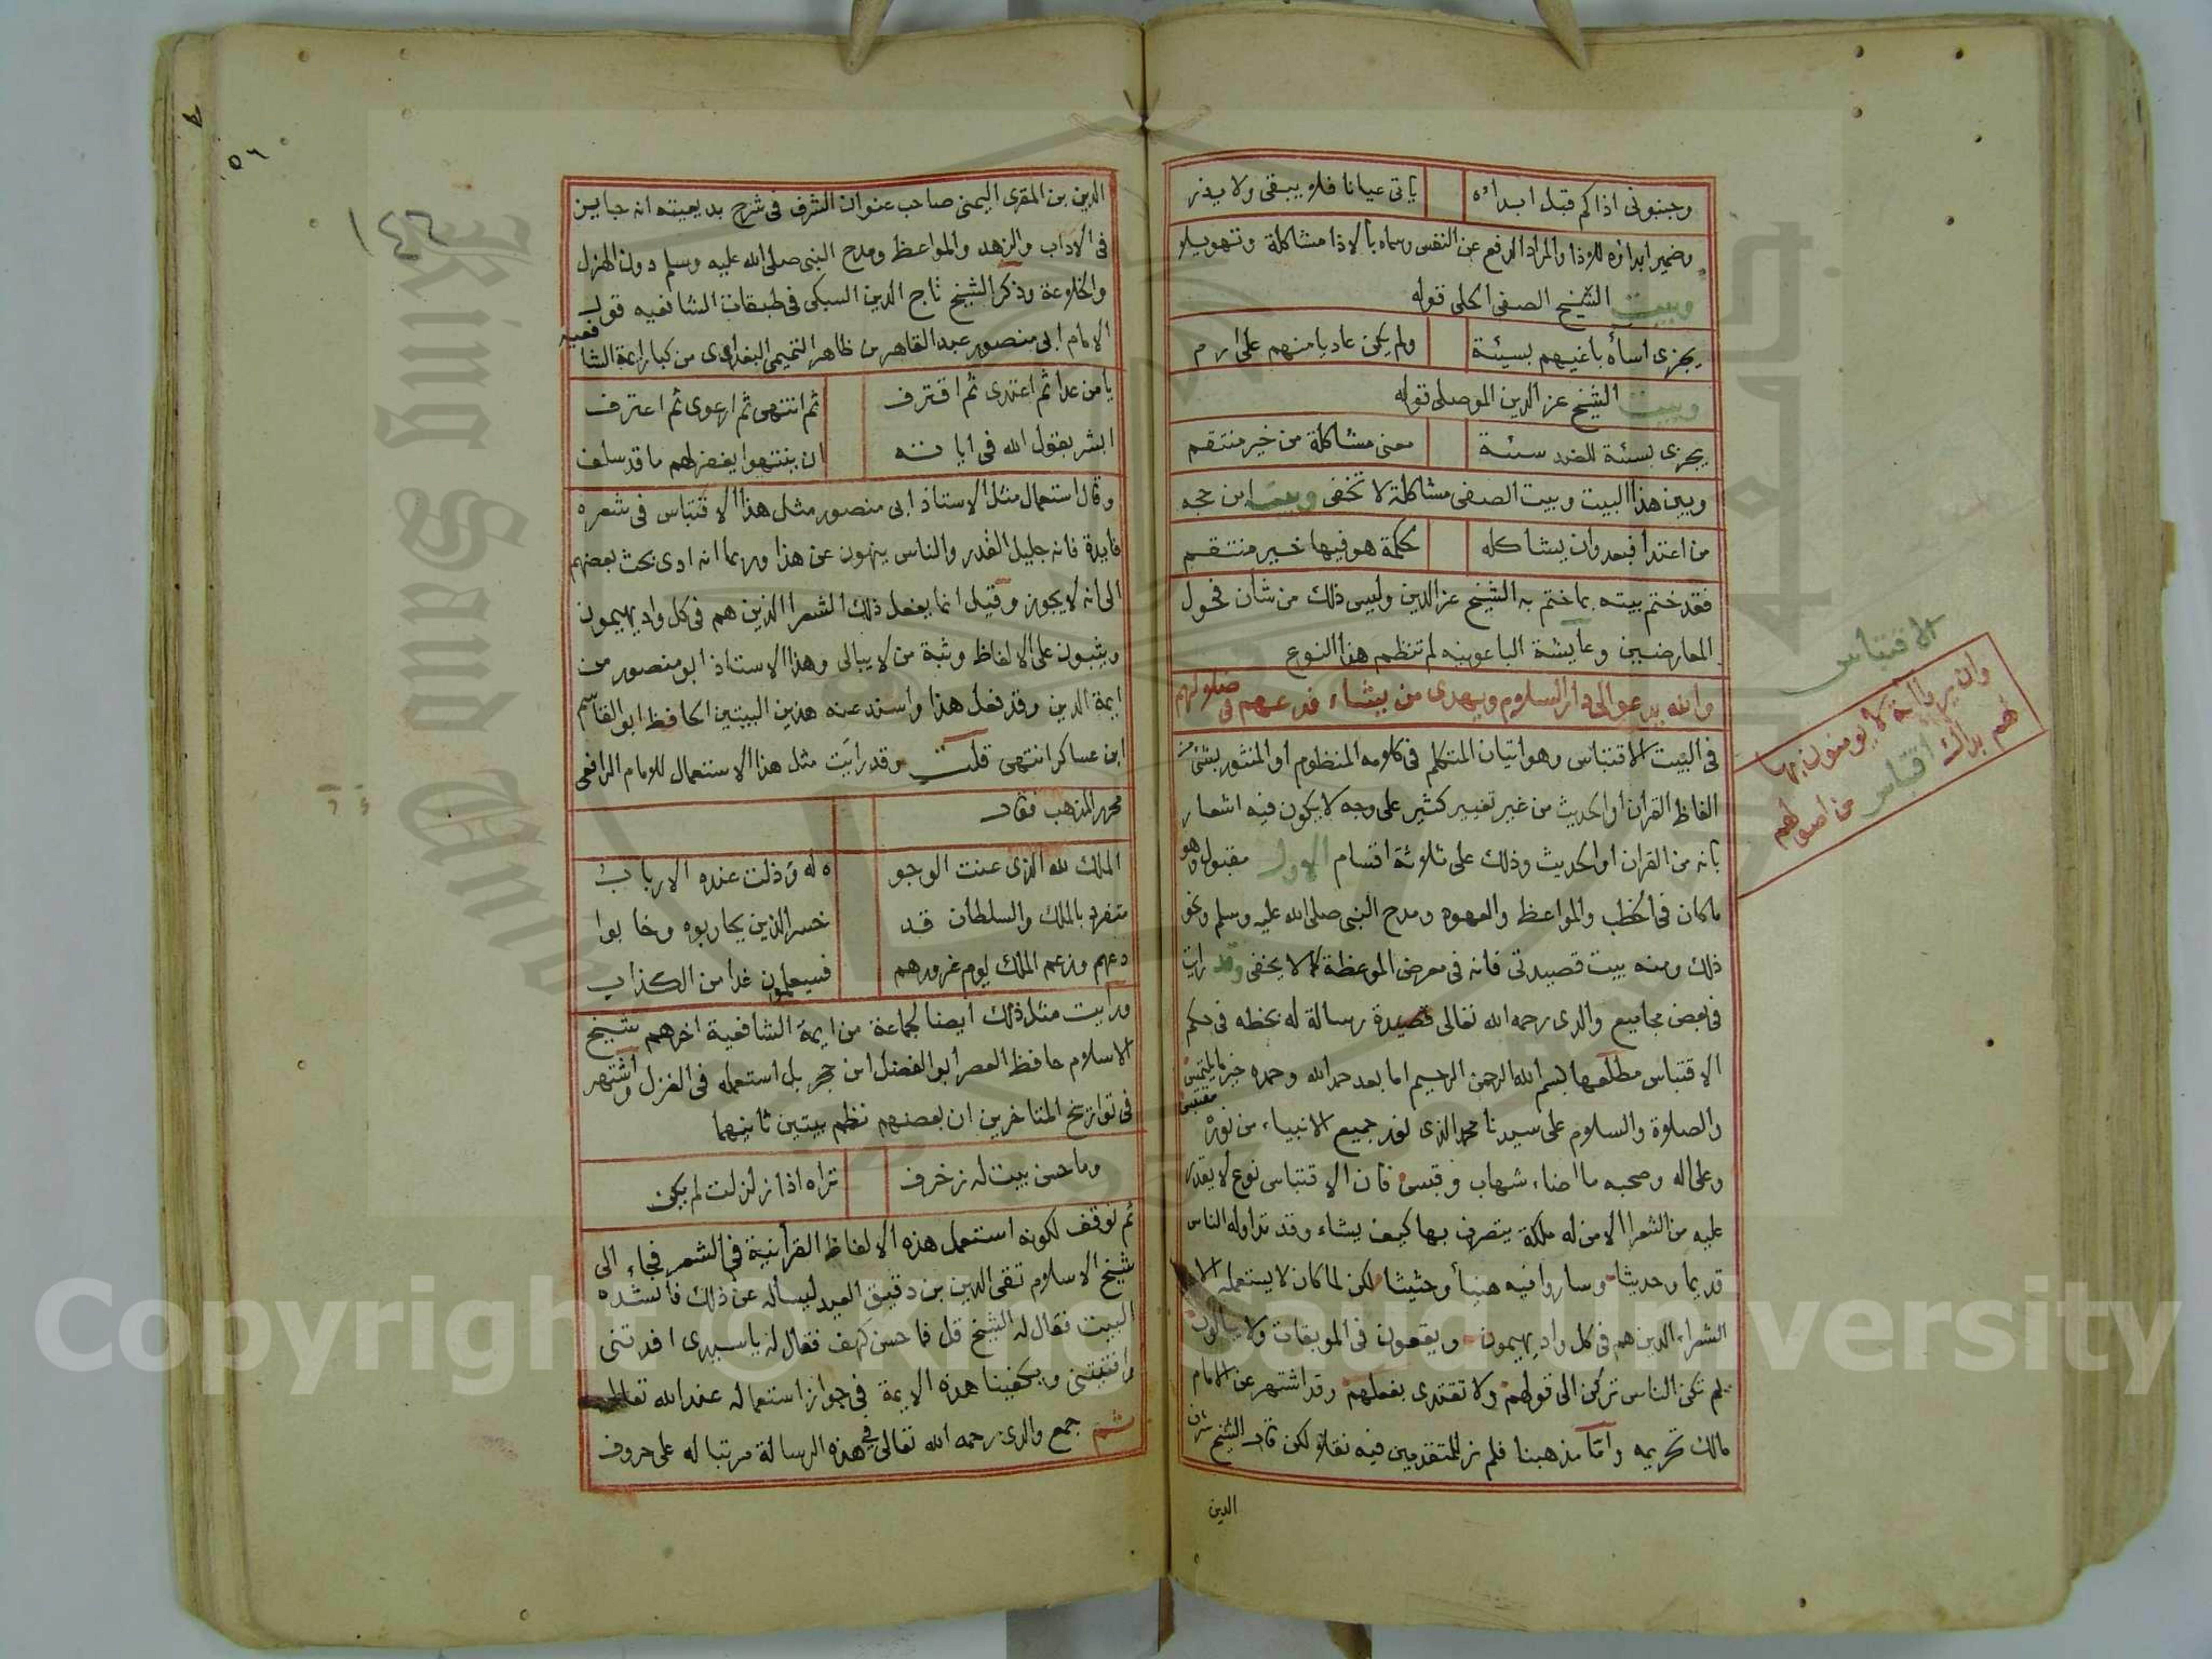 وجنبوني اذاكم قبل ابدائه ياتى عيانا فلا يبقى ولا يذر
وضمير ابدائه للاذا والمراد الدفع عن النفس وسماه بالاذا مشاكلة وتهويلا
وبيت الشيخ الصفى الحلى قوله
يجزى اساة باغيهم بسيئة ولم يكن عاديا منهم على ارم
وبيت الشيخ عز الدين الموصلى قوله
يجزى بسيئة للضد سيئة معنى مشاكلة من خير منتقم
وبين هذا البيت وبيت الصفى مشاكلة لا تخفى وبيت ابن حجه
من اعتدا فبعدوان يشاكله بحكمة هو فيها خير منتقم
فقد ختم بيته بما ختم به الشيخ عز الدين وليس ذلك من شأن فحول
المعارضين وعايشة الباعونيه لم تنظم هذا النوع
والله يدعو الى دار السلام ويهدى من يشاء فدعهم فى ضلولهم
فى البيت الاقتباس وهو اتيان المتكلم فى كلامه المنظوم او المنثور بشئ من
الفاظ القران او الحديث من غير تغيير كثير على وجه لا يكون فيه اشعار
بانه من القران او الحديث وذلك على ثلاثة اقسام الاول مقبول وهو
ماكان فى الخطب والمواعظ والعهود ومدح النبى صلى الله عليه وسلم ونحو
ذلك ومنه بيت قصيدتى فانه فى معرض الموعظة كما لا يخفى وقد رايت
فى بعض مجاميع والدى رحمه الله تعالى قصيدة رسالة له بخطه فى حكم
الاقتباس مطلعها بسم الله الرحمن الرحيم اما بعد حمد الله وحمده خير ما يلتمس
والصلاة والسلام على سيدنا محمد الذى نور جميع الانبياء من نوره مقتبس
وعلى اله وصحبه ما اضاء شهاب وقبس فان الاقتباس نوع لا يقدر
عليه من الشعرا الا من له ملكة يتصرف بها كيف يشاء وقد تداوله الناس
قديما وحديثا وساروا فيه هينا وحثيثا لكن لما كان لا يستعمله الا
الشعراء الذين هم فى كل واد يهيمون ويقعون فى الموبقات ولا يبالون
لم تكن الناس تركن الى قولهم ولا تقتدى بفعلهم وقد اشتهر عن الامام
مالك تحريمه واما مذهبنا فلم نر للمتقدمين فيه نقلا لكن قال الشيخ شرف
الدين
الاقتباس
وان يروا اية لا يومنون بها
فهم بذاك اقتباس من اصولهم
الدين بن المقرى اليمنى صاحب عنوان الشرف فى شرح بديعيته انه جايز
فى الاداب والزهد والمواعظ ومدح النبى صلى الله عليه وسلم دون الهزل
والخلاعة وذكر الشيخ تاج الدين السبكى فى طبقات الشافعيه قول
الامام ابى منصور عبد القاهر بن طاهر التميمى البغدادى من كبار ايمة الشافعيه
يا من عدا ثم اعتدى ثم اقترف ثم انتهى ثم ارعوى ثم اعترف
ابشر بقول الله فى اياته ان ينتهوا يغفر لهم ما قد سلف
وقال استعمال مثل الاستاذ ابى منصور مثل هذا الاقتباس فى شعره
فايدة فانه جليل القدر والناس ينهون عن هذا وربما انه ادى بحث بعضهم
الى انه لا يجوز وقيل انما يفعل ذلك الشعرا الذين هم فى كل واد يهيمون
ويثبون على الالفاظ وثبة من لا يبالى وهذا الاستاذ ابو منصور من
ايمة الدين وقد فعل هذا واسند عنه هذين البيتين الحافظ ابو القاسم
ابن عساكر انتهى قلت وقد رايت مثل هذا الاستعمال للامام الرافعى
محرر المذهب فقال
الملك لله الذى عنت الوجو ه له وذلت عنده الارباب
متفرد بالملك والسلطان قد خسر الذين يحاربوه وخابوا
دعهم وزعم الملك يوم غرورهم فسيعلمون غدا من الكذاب
ورايت مثل ذلك ايضا لجماعة من ايمة الشافعية اخرهم شيخ
الاسلام حافظ العصر ابو الفضل ابن حجر بل استعمله فى الغزل واشتهر
فى تواريخ المتاخرين ان بعضهم نظم بيتين ثانيهما
وما حسن بيت له زخرف تراه اذا زلزلت لم يكن
ثم توقف لكونه استعمل هذه الالفاظ القرانية فى الشعر فجاء الى
شيخ الاسلام تقى الدين بن دقيق العيد ليساله عن ذلك فانشده
البيت فقال له الشيخ قل فما حسن كهف فقال له يا سيدى افدتنى
وافتيتنى ويكفينا هذه الايمة فى جواز استعماله عند الله تعالى
ثم جمع والدى رحمه الله تعالى فى هذه الرسالة مرتبا له على حروف
١٤٦
٥٦
Copyright © King Saud University